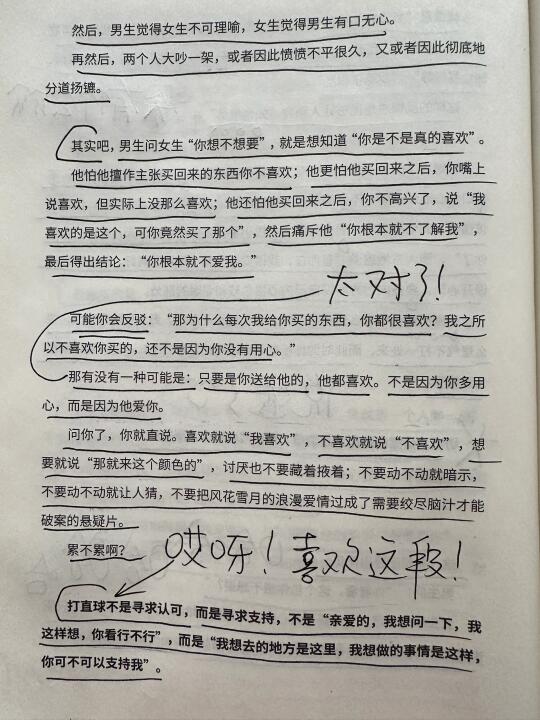 然后，男生觉得女生不可理喻，女生觉得男生有口无心。
再然后，两个人大吵一架，或者因此愤愤不平很久，又或者因此彻底地
分道扬镳。
其实吧，男生问女生“你想不想要”，就是想知道“你是不是真的喜欢”。
他怕他擅作主张买回来的东西你不喜欢；他更怕他买回来之后，你嘴上
说喜欢，但实际上没那么喜欢；他还怕他买回来之后，你不高兴了，说“我
喜欢的是这个，可你竟然买了那个”，然后痛斥他“你根本就不了解我”，
最后得出结论：“你根本就不爱我。”
太对了！
可能你会反驳：“那为什么每次我给你买的东西，你都很喜欢？我之所
以不喜欢你买的，还不是因为你没有用心。”
那有没有一种可能是：只要是你送给他的，他都喜欢。不是因为你多用
心，而是因为他爱你。
问你了，你就直说。喜欢就说“我喜欢”，不喜欢就说“不喜欢”，想
要就说“那就来这个颜色的”，讨厌也不要藏着掖着；不要动不动就暗示，
不要动不动就让人猜，不要把风花雪月的浪漫爱情过成了需要绞尽脑汁才能
破案的悬疑片。
累不累啊？
哎呀！喜欢这段！
打直球不是寻求认可，而是寻求支持，不是“亲爱的，我想问一下，我
这样想，你看行不行”，而是“我想去的地方是这里，我想做的事情是这样，
你可不可以支持我”。